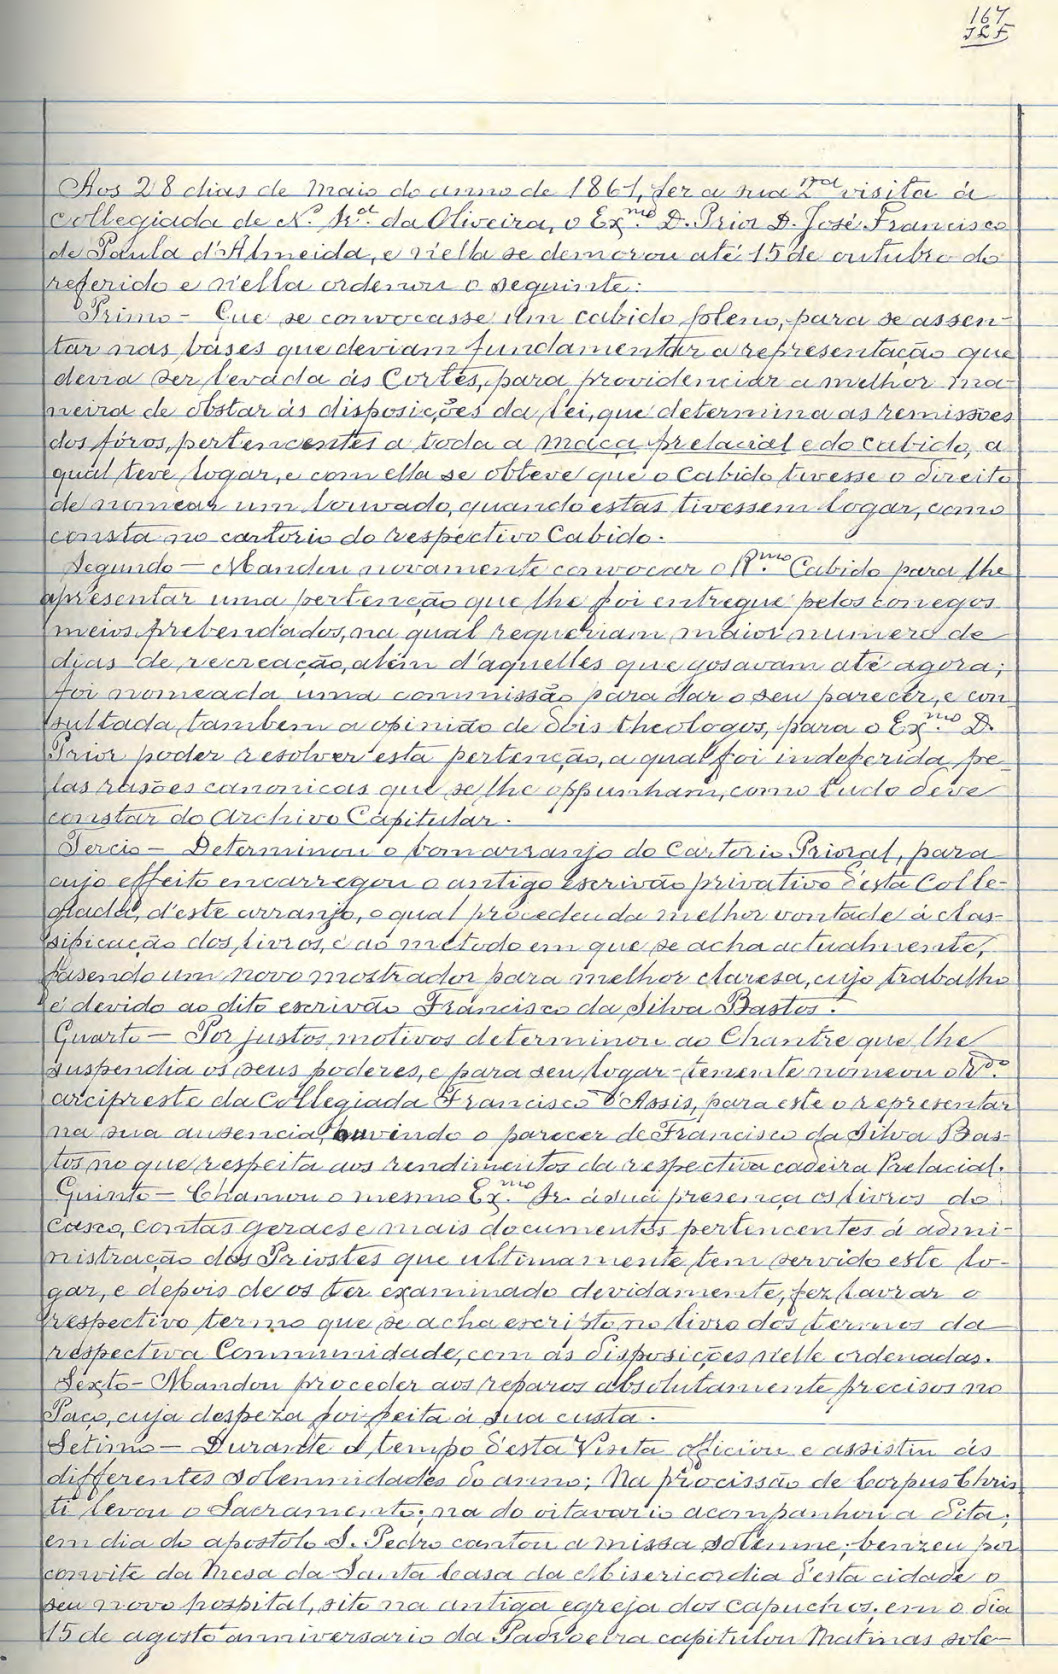 167
J L F
Aos 28 dias de Maio do anno de 1861, fez a sua 2.ª visita á
Collegiada de N. Sr.ª da Oliveira, o Ex.mo D. Prior D. José Francisco
de Paula d'Almeida, e n'ella se demorou até 15 de outubro do
referido e n'ella ordenou o seguinte:
Primo - Que se convocasse um cabido pleno, para se assen-
tar nas báses que deviam fundamentar a representação que
devia ser levada ás Cortes, para providenciar a melhor ma-
neira de obstar ás disposições da lei, que determina as remissões
dos fóros, pertencentes a toda a maça prelacial e do cabido, a
qual teve logar, e com ella se obteve que o Cabido tivesse o direito
de nomear um louvado, quando estas tivessem logar, como
consta no cartorio do respectivo Cabido.
Segundo - Mandou novamente convocar o R.mo Cabido para lhe
apresentar uma pertenção que lhe foi entregue pelos conegos
meios prebendados, na qual requeriam maior numero de
dias de recreação, além d'aquelles que gosavam até agora;
foi nomeada uma commissão para dar o seu parecer, e con-
sultada, tambem a opinião de dois theologos, para o Ex.mo D.
Prior poder resolver esta pertenção, a qual foi indeferida, pe-
las rasões canonicas que se lhe oppunham, como tudo deve
constar do Archivo Capitular.
Tercio - Determinou o bom arranjo do Cartorio Prioral, para
cujo effeito encarregou o antigo escrivão privativo d'esta Colle-
giada, d'este arranjo, o qual procedeu da melhor vontade á clas-
sificação dos livros, e ao metodo em que se acha actualmente,
fasendo um novo mostrador para melhor claresa, cujo trabalho
é devido ao dito escrivão Francisco da Silva Bastos.
Quarto - Por justos motivos determinou ao Chantre que lhe
suspendia os seus poderes, e para seu logar-tenente nomeou o R.do
arcipreste da Collegiada Francisco d'Assis, para este o representar
na sua ausencia, ouvindo o parecer de Francisco da Silva Bas-
tos no que respeita aos rendimentos da respectiva cadeira Prelacial.
Quinto - Chamou o mesmo Ex.mo Sr. á sua presença os livros do
Casco, contas geraes e mais documentos pertencentes á admi-
nistração dos Priostes que ultimamente tem servido este lo-
gar, e depois de os ter examinado devidamente, fez lavrar o
respectivo termo que se acha escripto no livro dos termos da
respectiva Communidade, com as disposições n'elle ordenadas.
Sexto - Mandou proceder aos reparos absolutamente precisos no
Paço, cuja despeza foi feita á sua custa.
Setimo - Durante o tempo d'esta Visita officiou e assistiu ás
differentes solemnidades do anno; Na procissão de Corpus Chris
ti levou o Sacramento; na do oitavario acompanhou a dita;
em dia do apostolo S. Pedro cantou a missa solemne; benzeu por
convite da Mesa da Santa Casa da Misericordia d'esta cidade o
seu novo hospital, sito na antiga egreja dos capuchos; em o dia
15 de agosto anniversario da Padroeira capitulou Matinas sole-